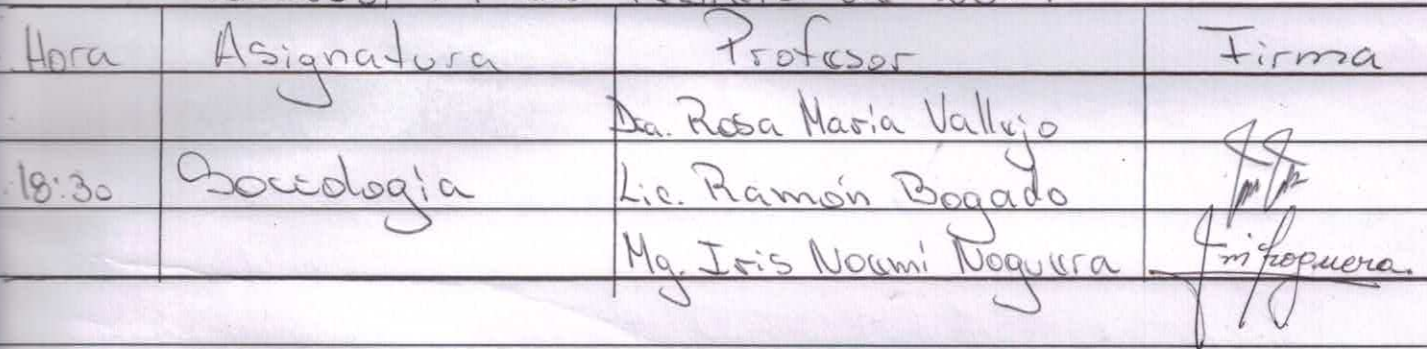 Hora Asignatura Profesor Firma
Dra. Rosa María Vallejo
18:30 Sociología Lic. Ramón Bogado
Mg. Iris Noemí Noguera